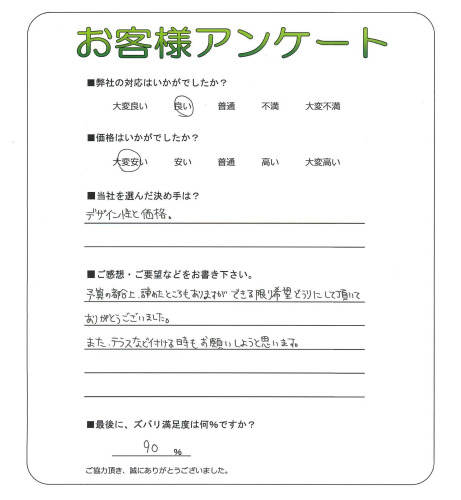 お客様アンケート
■弊社の対応はいかがでしたか？
大変良い 良い 普通 不満 大変不満
■価格はいかがでしたか？
大変安い 安い 普通 高い 大変高い
■当社を選んだ決め手は？
デザイン性と価格。
■ご感想・ご要望などをお書き下さい。
予算の都合上、諦めたところもありますができる限り希望どうりにして頂いて
ありがとうございました。
また、テラスなど付ける時もお願いしようと思います。
■最後に、ズバリ満足度は何%ですか？
90 %
ご協力頂き、誠にありがとうございました。